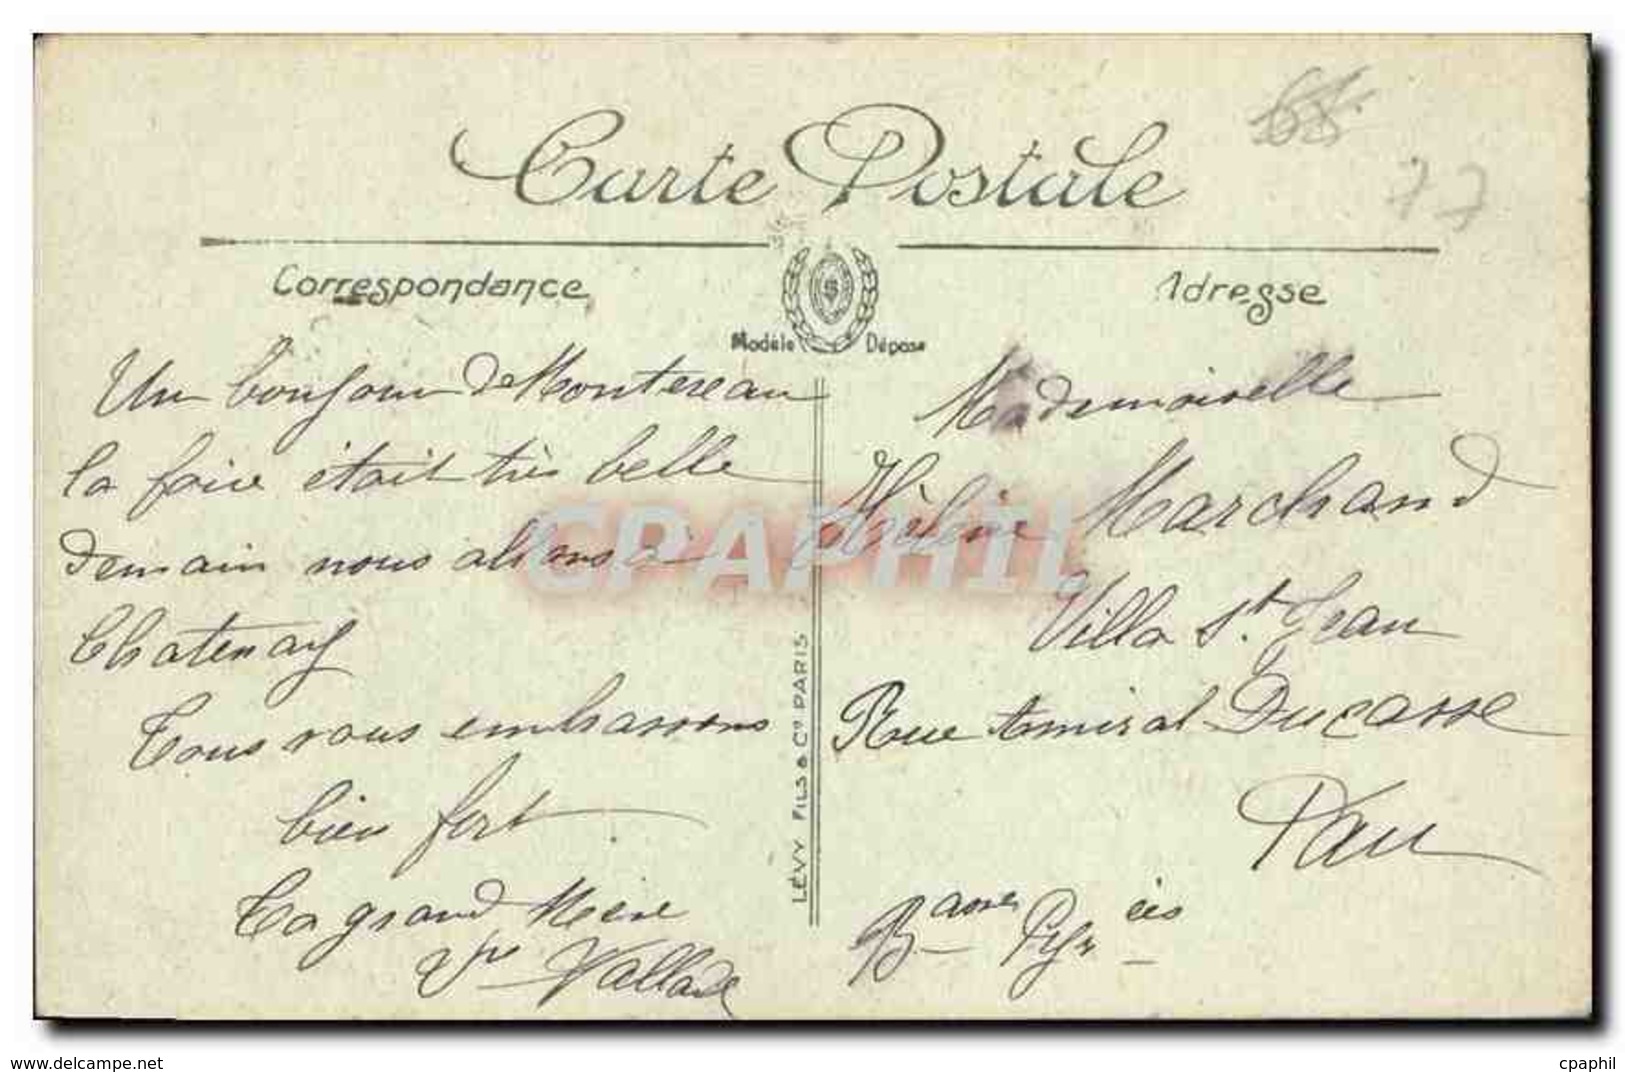 Carte Postale
77
Correspondance
Adresse
Modèle Déposé
Un bonjour de Montereau
la foire était très belle
demain nous allons à
Chatenay
Tous vous embrassons
bien fort
Ta grand Mère
Vve Vallade
LÉVY FILS & Co PARIS
Mademoiselle
Hélène Marchand
Villa St. Jean
Rue Amiral Ducasse
Pau
Basses Pyrées
CPAPHIL
cpaphil